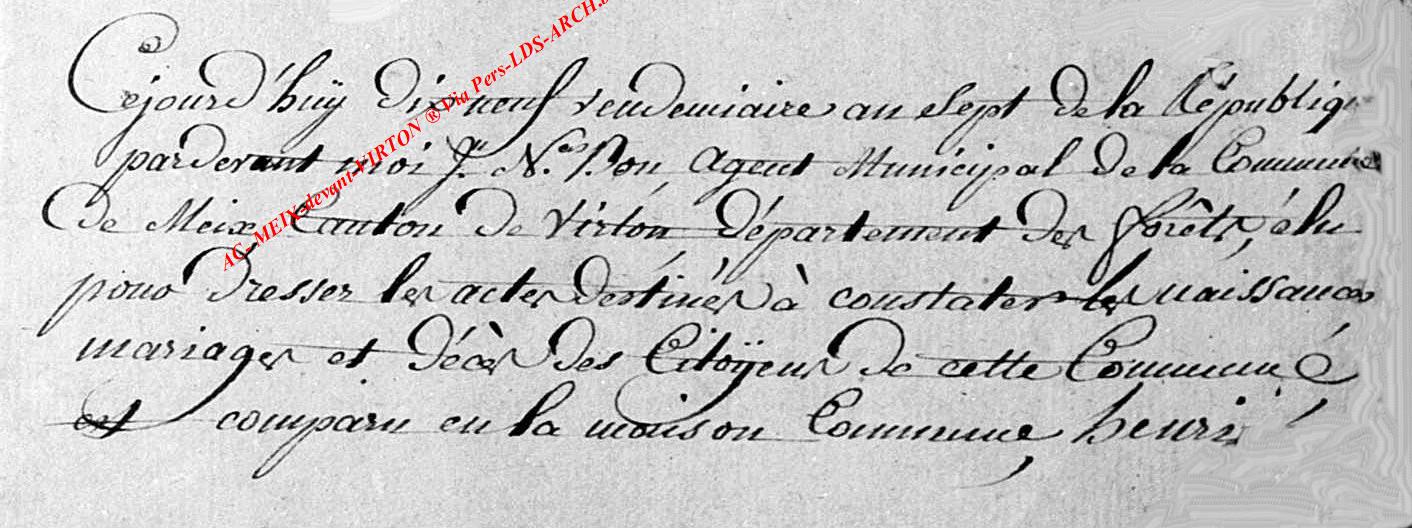 Cejourd'huy dix neuf vendemiaire an sept de la Républiq
pardevant moi Jn. Nas. Bon Agent Municipal de la Commune
de Meix, Canton de Virton, département des forêts, élu
pour dresser les actes destinés à constater les naissances
mariages et décès des Citoÿens de cette Commune
est comparu en la maison Commune, henri
AC-MEIX-devant-VIRTON ® Via Pers-LDS-ARCH.